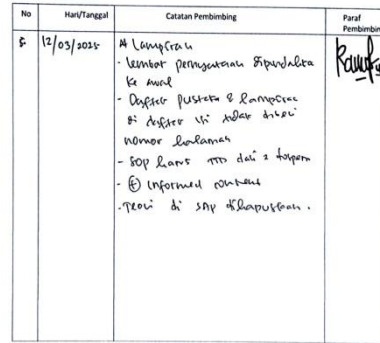 No Hari/Tanggal Catatan Pembimbing Paraf Pembimbing
5. 12/03/2025 # Lampiran
- lembar pernyataan dipindahkan
ke awal
- Daftar pustaka & Lampiran
di daftar isi tidak diberi
nomor halaman
- SOP harus TTD dari 2
- (+) informed consent
- Teori di SAP dihapuskan.